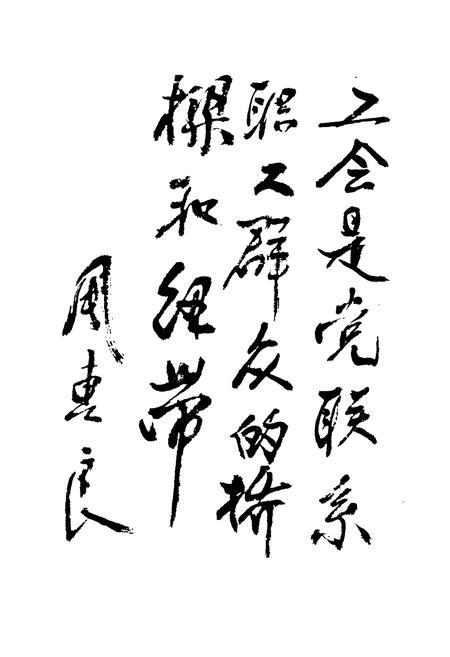 工会是党联系
职工群众的桥
樑和纽带
周惠良